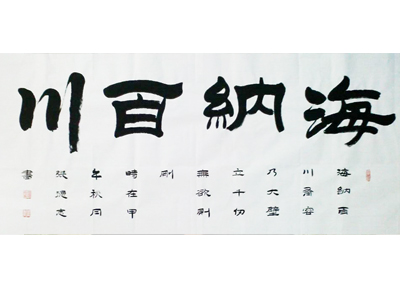 海納百川
海納百
川有容
乃大壁
立千仞
無欲則
剛
時在甲
午秋月
書